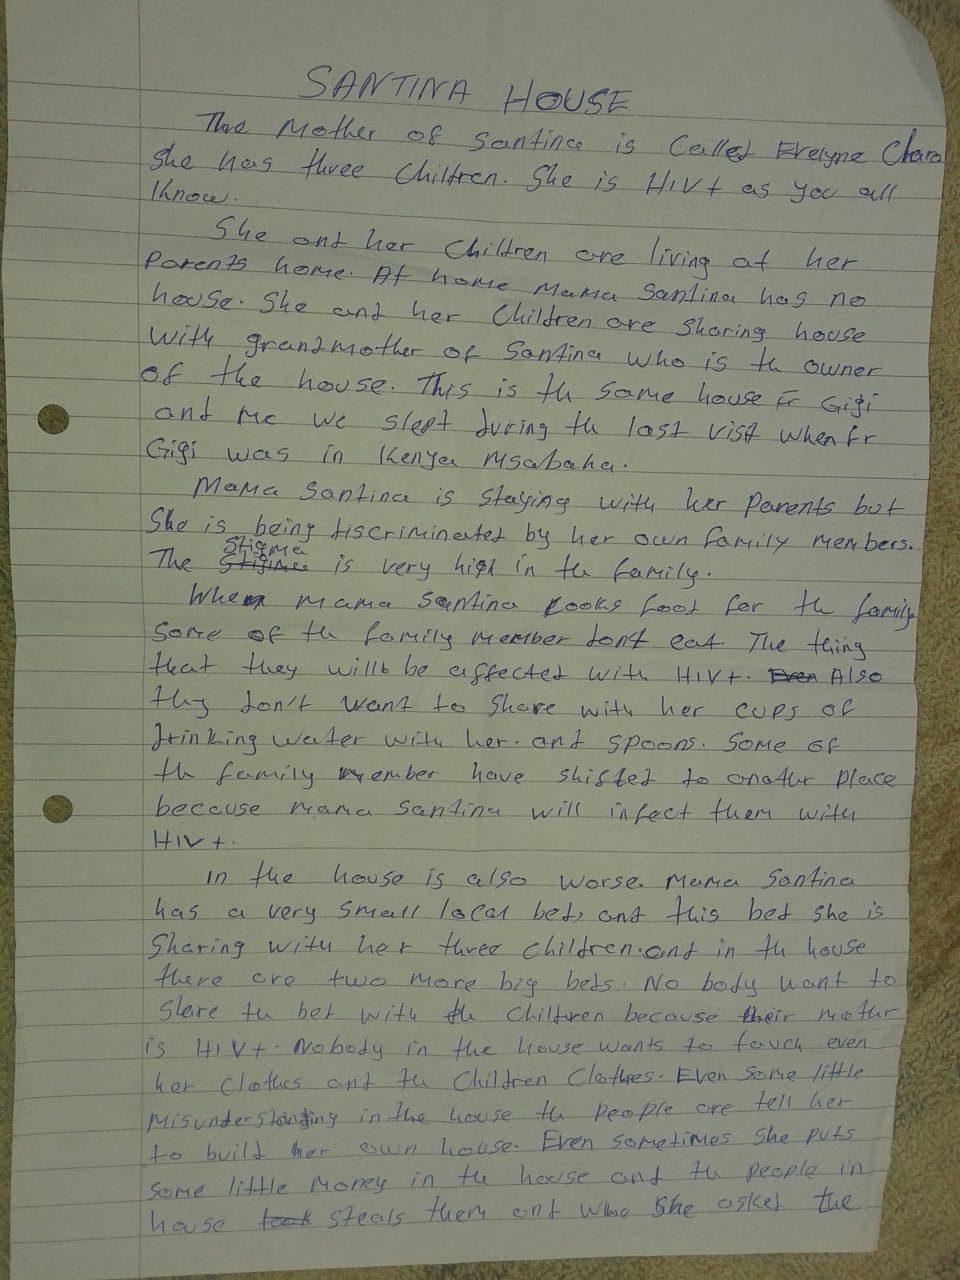 SANTINA HOUSE
The Mother of Santina is Called Evelyne Charo
She has three Children. She is HIV+ as you all
Know.
She and her Children are living at her
Parents home. At home Mama Santina has no
house. She and her Children are sharing house
with grandmother of Santina who is th owner
of the house. This is th same house Fr Gigi
and me we slept during th last visit when Fr
Gigi was in Kenya Msabaha.
Mama Santina is staying with her Parents but
She is being discriminated by her own family members.
The Stigma is very high in th family.
When Mama Santina Cooks food for th family
Some of th family member dont eat The thing
that they will be affected with HIV+. Even Also
they don't want to share with her cups of
drinking water with her. and spoons. Some of
th family member have shifted to anothr place
because mama Santina will infect them with
HIV+.
In the house is also worse. Mama Santina
has a very small local bed, and this bed she is
Sharing with her three Children. and in th house
there are two more big beds. No body want to
Share th bed with th Children because their mothr
is HIV+. Nobody in the house wants to touch even
her Clothes and th Children Clothes. Even Some little
misunderstanding in the house th People are tell her
to build her own house. Even sometimes She puts
some little Money in th house and th people in
house took steals them and whe She asked the